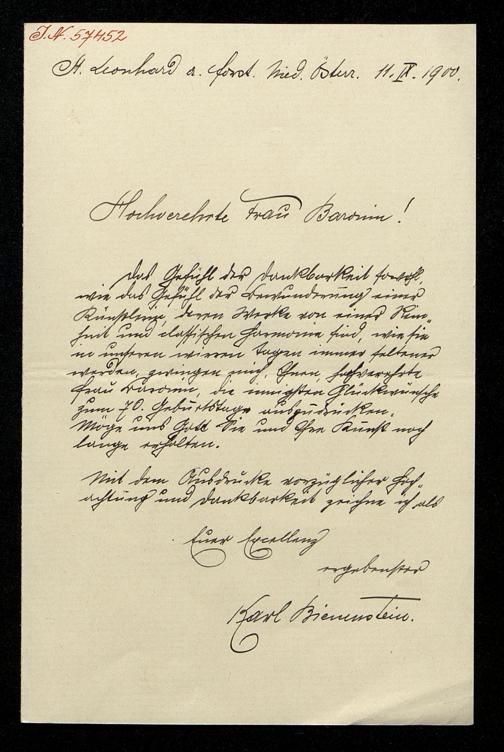 I.N. 57452
St. Leonhard a. Forst. Nied. Österr. 11. IX. 1900.
Hochverehrte Frau Baronin!
Das Gefühl der Dankbarkeit sowohl,
wie das Gefühl der Bewunderung einer
Künstlerin, deren Werke von einer Rein-
heit und classischen Harmonie sind, wie sie
in unseren wirren Tagen immer seltener
werden, zwingen mich, Ihnen, hochverehrte
Frau Baronin, die innigsten Glückwünsche
zum 70. Geburtstage auszudrücken.
Möge uns Gott Sie und Ihre Kunst noch
lange erhalten.
Mit dem Ausdrucke vorzüglicher Hoch-
achtung und Dankbarkeit zeichne ich als
Euer Excellenz
ergebenster
Karl Bienenstein.